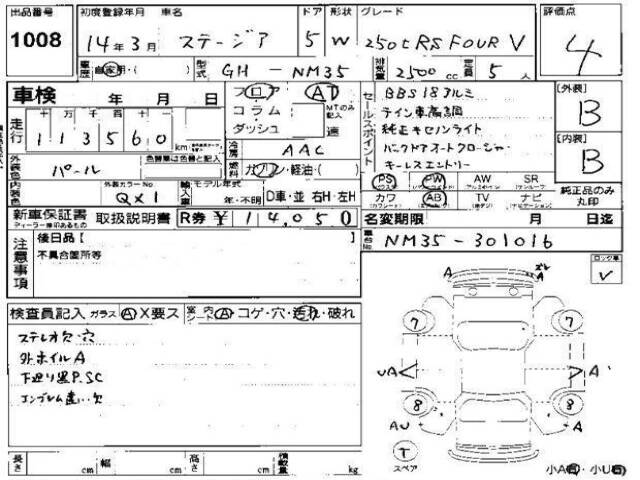 出品番号 初度登録年月 車名 ドア 形状 グレード 評価点
1008 14年3月 ステージア 5 W 250t RS FOUR V 4
車歴 自家用・( ) 型式 GH-NM35 排気量 2500 cc 定員 5 人
車検 年 月 日 フロア AT
コラム MTのみ記入
ダッシュ 速
走行 十 万 千 百 十 一
113560 km
セールス・ポイント
BBS18アルミ
テイン車高調
純正キセノンライト
バックドアオートクロージャー
キーレスエントリー
[外装] B
[内装] B
冷房 AAC
燃料 ガソリン・軽油・( )
外装色 パール 色替車は色番と記入
内装色 外装カラーNo QX1
輸入車 モデル年式 年・不明 D車・並 右H・左H
PS PW AW SR
カワ AB TV ナビ
純正品のみ丸印
新車保証書 取扱説明書 R券 ¥ 14,050
ディーラー捺印あるもの
名変期限 月 日迄
車台No NM35-301016
注意事項 後日品【 】
不具合箇所等
ロック車
検査員記入 ガラス A X要ス 室内 シート A コゲ・穴・汚れ・破れ
ステレオ欠・穴
外ホイルA
下廻り黒P.SC
エンブレム・・欠
A A ズレ
7 7
UA A
8 8
AU A
T
スペア
長さ cm 幅 cm 高さ cm 積載量 kg
小A 小U